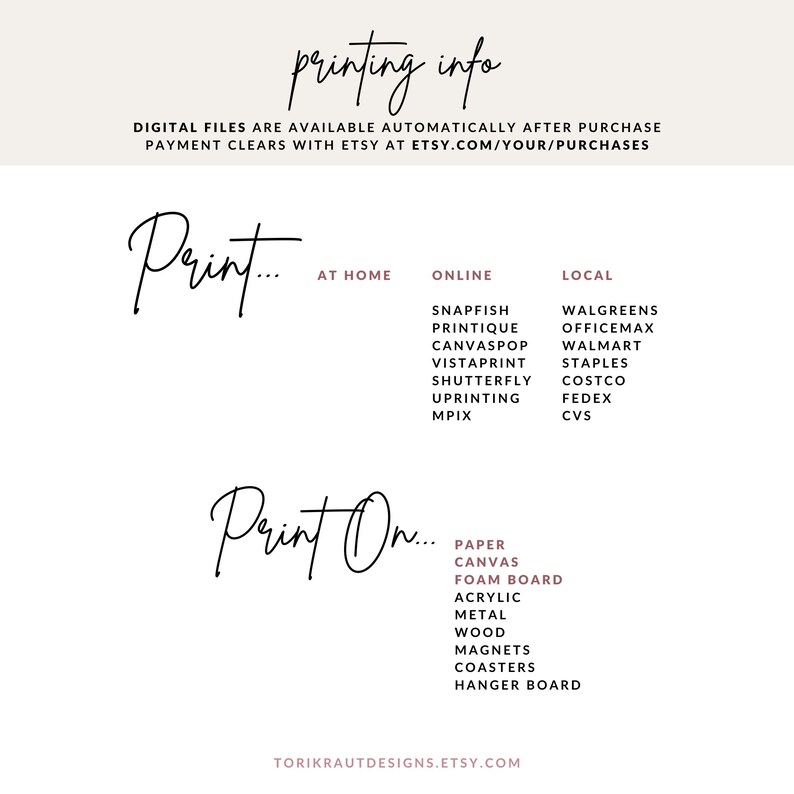 printing info
DIGITAL FILES ARE AVAILABLE AUTOMATICALLY AFTER PURCHASE
PAYMENT CLEARS WITH ETSY AT ETSY.COM/YOUR/PURCHASES
Print...
AT HOME
ONLINE
SNAPFISH
PRINTIQUE
CANVASPOP
VISTAPRINT
SHUTTERFLY
UPRINTING
MPIX
LOCAL
WALGREENS
OFFICEMAX
WALMART
STAPLES
COSTCO
FEDEX
CVS
Print On...
PAPER
CANVAS
FOAM BOARD
ACRYLIC
METAL
WOOD
MAGNETS
COASTERS
HANGER BOARD
TORIKRAUTDESIGNS.ETSY.COM